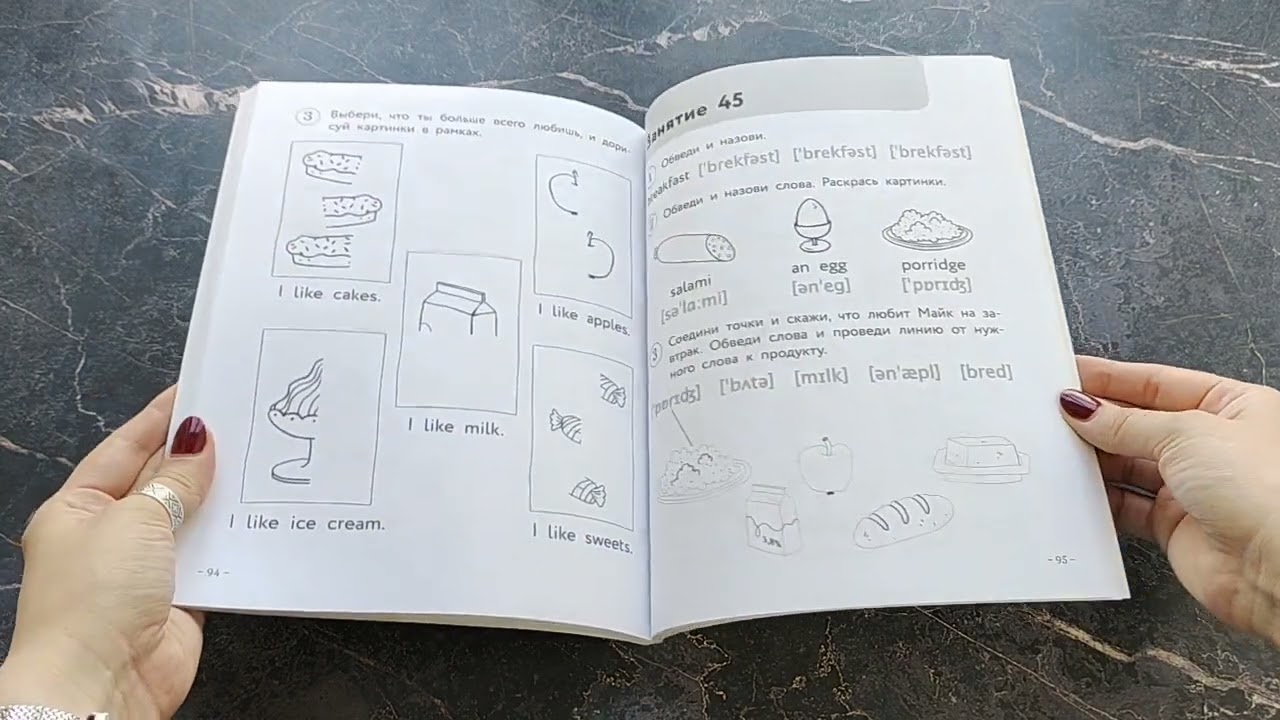 3 Выбери, что ты больше всего любишь, и дори-
суй картинки в рамках.
I like cakes.
I like apples.
I like milk.
I like ice cream.
I like sweets.
- 94 -
Занятие 45
Обведи и назови.
breakfast ['brekfəst] ['brekfəst] ['brekfəst]
Обведи и назови слова. Раскрась картинки.
salami
an egg
porridge
[sə'lɑ:mi]
[ən'eg]
['pɒrɪdʒ]
3 Соедини точки и скажи, что любит Майк на за-
втрак. Обведи слова и проведи линию от нуж-
ного слова к продукту.
['pɒrɪdʒ] ['bʌtə] [mɪlk] [ən'æpl] [bred]
3,8%
- 95 -